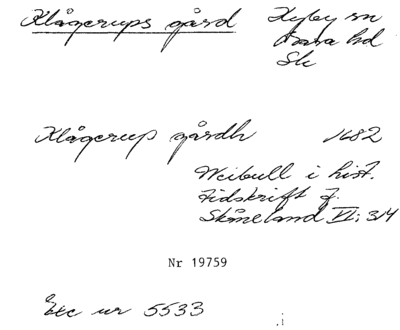 Klågerups gård
Hyby sn
Bara hd
Sk
Klågerup gårdh 1682
Weibull i hist.
tidskrift f.
Skåneland VI: 3/4
Nr 19759
Exc ur 5533